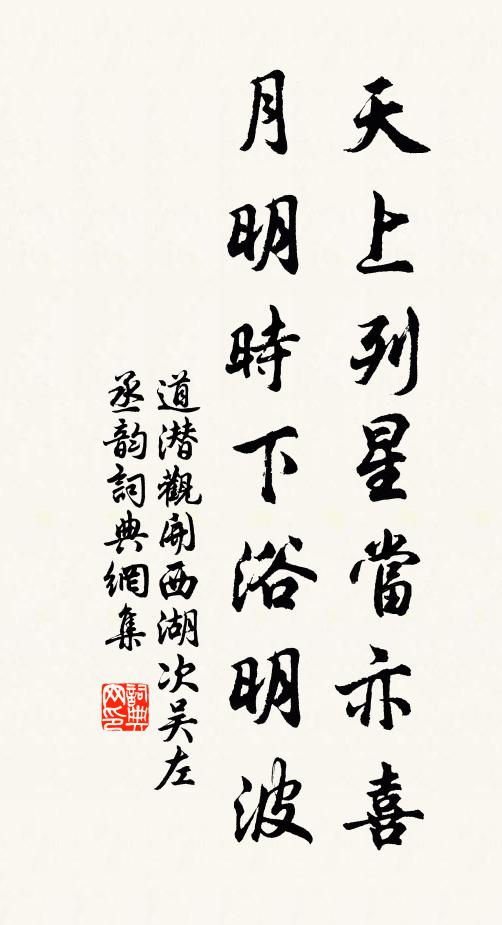 天上列星當亦喜
月明時下浴明波
道潛觀開西湖次吴左
丞韵詞典網集
詞典
网印